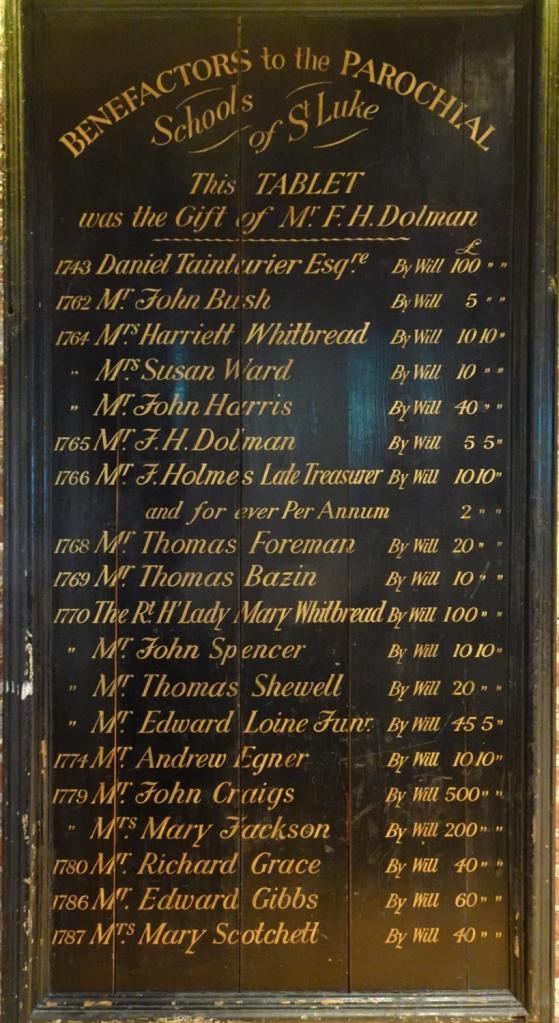 BENEFACTORS to the PAROCHIAL
Schools of St Luke
This TABLET
was the Gift of Mr. F.H.Dolman
£
1743 Daniel Tainturier Esqre. By Will 100 " "
1762 Mr. John Bush By Will 5 " "
1764 Mrs Harriett Whitbread By Will 10 10 "
" Mrs Susan Ward By Will 10 " "
" Mr. John Harris By Will 40 " "
1765 Mr. J.H. Dolman By Will 5 5 "
1766 Mr. J. Holmes Late Treasurer By Will 10 10 "
and for ever Per Annum 2 " "
1768 Mr. Thomas Foreman By Will 20 " "
1769 Mr. Thomas Bazin By Will 10 " "
1770 The Rt. H'Lady Mary Whitbread By Will 100 " "
" Mr. John Spencer By Will 10 10 "
" Mr. Thomas Shewell By Will 20 " "
" Mr. Edward Loine Junr. By Will 45 5 "
1774 Mr. Andrew Egner By Will 10 10 "
1779 Mr. John Craigs By Will 500 " "
" Mrs Mary Jackson By Will 200 " "
1780 Mr. Richard Grace By Will 40 " "
1786 Mr. Edward Gibbs By Will 60 " "
1787 Mrs. Mary Scotchett By Will 40 " "